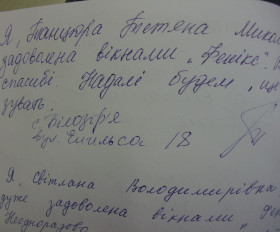 Я, Танцюра Тетяна Мико
задоволена вікнами „Фенікс".
спасибі. Надалі будем „ин
зувать.
с. Білозір'я
вул. 18
Я, Світлана Володимирівка
дуже задоволена вікнами
Неодноразово